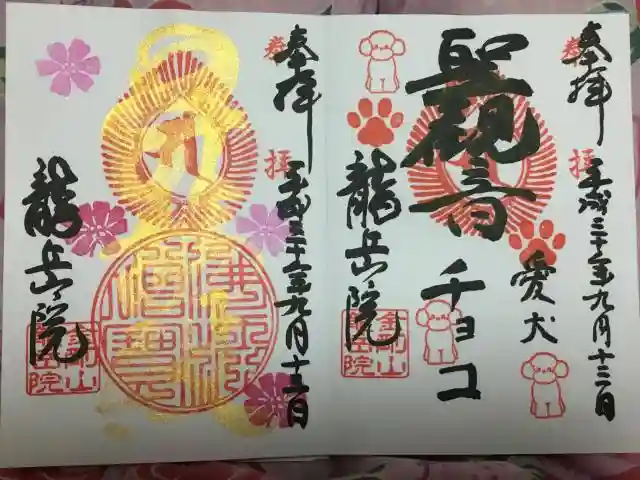 奉拝
平成三十年九月十三日
聖観音
愛犬
チョコ
龍岳院
奉拝
平成三十年九月十三日
佛法僧寳
龍岳院